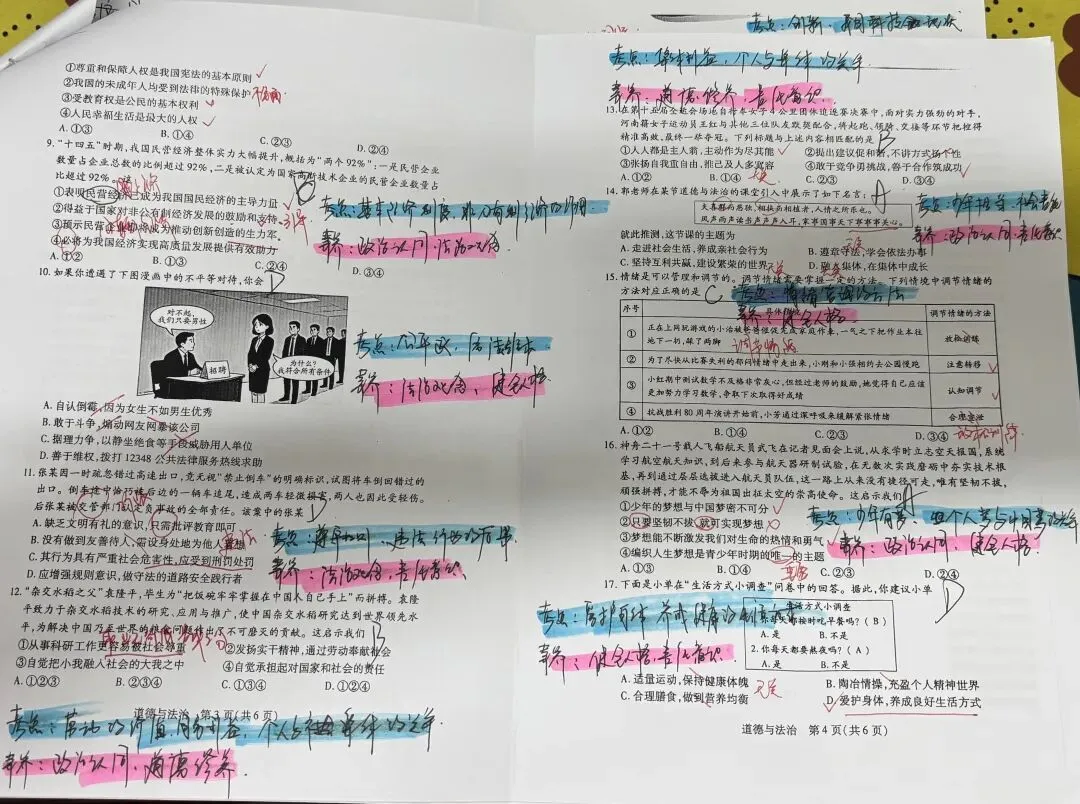 考点：创新、我国科技
①尊重和保障人权是我国宪法的基本原则
②我国的未成年人均受到法律的特殊保护
③受教育权是公民的基本权利
④人民幸福生活是最大的人权
A. ①③ B. ①④ C. ②③ D. ②④
9. “十四五”时期，我国民营经济整体实力大幅提升，概括为“两个 92%”：一是民营企业
数量占企业总数的比例超过 92%，二是被认定为国家高新技术企业的民营企业数量占
比超过 92%。
①表明民营经济已成为我国国民经济的主导力量
②得益于国家对非公有制经济发展的鼓励和支持
③预示民营企业将成为推动创新创造的生力军
④必将为我国经济实现高质量发展提供有效助力
A. ①② B. ①③ C. ②④ D. ③④
C
引导
考点：基本经济制度、非公有制经济的作用
素养：政治认同、法治观念
10. 如果你遭遇了下图漫画中的不平等对待，你会
D
对不起，
我们只要男性
招聘
为什么？
我符合所有条件
考点：公平
素养：法治观念、健全人格
A. 自认倒霉，因为女生不如男生优秀
B. 敢于斗争，煽动网友网暴该公司
C. 据理力争，以静坐绝食等手段威胁用人单位
D. 善于维权，拨打 12348 公共法律服务热线求助
11. 张某因一时疏忽错过高速出口，竟无视“禁止倒车”的明确标识，试图将车倒回错过的
出口。倒车途中恰巧被后边的一辆车追尾，造成两车轻微损害，两人也因此受轻伤。
后张某被交管部门认定负事故的全部责任。该案中的张某
D
A. 缺乏文明有礼的意识，只需批评教育即可
B. 没有做到友善待人，需设身处地为他人着想
C. 其行为具有严重社会危害性，应受到刑罚处罚
D. 应增强规则意识，做守法的道路安全践行者
违法
考点：尊重规则、违法行为的后果
素养：法治观念、责任意识
12. “杂交水稻之父”袁隆平，毕生为“把饭碗牢牢掌握在中国人自己手上”而拼搏。袁隆
平致力于杂交水稻技术的研究、应用与推广，使中国杂交水稻研究达到世界领先水
平，为解决中国乃至世界的粮食问题作出了不可磨灭的贡献。这启示我们
B
①从事科研工作更容易被社会尊重 ②发扬实干精神，通过劳动奉献社会
③自觉把小我融入社会的大我之中 ④自觉承担起对国家和社会的责任
A. ①②③ B. ②③④ C. ①③④ D. ①②④
道德与法治 第 3 页(共 6 页)
考点：劳动的价值、个人与集体的关系
素养：政治认同、道德修养
考点：集体利益、个人与集体的关系
素养：道德修养、责任意识
13. 在第十五届全运会场地自行车女子 4 公里团体追逐赛决赛中，面对实力强劲的对手，
河南籍女子运动员王红与其他三位队友默契配合，将起跑、领骑、交接等环节把控得
精准高效，最终一举夺冠。下列标题与上述内容相匹配的是
B
①人人都是主人翁，主动作为尽其能 ②提出建议促和谐，不讲方式扬个性
③张扬自我重自由，推己及人多宽容 ④敢于竞争勇挑战，善于合作筑成功
A. ①② B. ①④ C. ②③ D. ③④
14. 郭老师在某节道德与法治的课堂引入中展示了如下名言：
A
夫喜群而恶独，相扶而相植者，人情之所乐也。
风声雨声读书声声声入耳，家事国事天下事事事关心。
就此推测，这节课的主题为
A. 走进社会生活，养成亲社会行为 B. 遵章守法，学会依法办事
C. 坚持互利共赢，建设繁荣的世界 D. 融入集体，在集体中成长
无关
考点：少年担当、社会责任
素养：政治认同、责任意识
15. 情绪是可以管理和调节的。调节情绪需要掌握一定的方法。下列情境中调节情绪的
方法对应正确的是
C
考点：情绪管理的方法
素养：健全人格
序号 具体情境 调节情绪的方法
① 正在上网玩游戏的小治被爸爸催促完成家庭作业，一气之下把作业本往
地下一扔，踩了两脚 放松训练
② 为了尽快从比赛失利的郁闷情绪中走出来，小刚和小强相约去公园慢跑 注意转移
③ 小红期中测试数学不及格非常灰心，但经过老师的鼓励，她觉得自己应该
更加努力学习数学，争取下次取得好成绩 认知调节
④ 抗战胜利 80 周年演讲开始前，小芳通过深呼吸来缓解紧张情绪 合理宣泄
A. ①② B. ①④ C. ②③ D. ③④
16. 神舟二十一号载人飞船航天员武飞在记者见面会上说，从求学时立志空天报国，系统
学习航空航天知识，到后来参与航天器研制试验，在无数次实践磨砺中夯实技术根
基，再到通过层层选拔进入航天员队伍，这一路上从来没有捷径可走，唯有坚韧不拔，
顽强拼搏，才能不辱为祖国出征太空的崇高使命。这启示我们
A
①少年的梦想与中国梦密不可分
②只要坚韧不拔，就可实现梦想
③梦想能不断激发我们对生命的热情和勇气
④编织人生梦想是青少年时期的唯一的主题
A. ①③ B. ①④ C. ②③ D. ②④
考点：少年有梦、
素养：政治认同、健全人格
17. 下面是小单在“生活方式小调查”问卷中的回答。据此，你建议小单
D
生活方式小调查
1. 你每天都按时吃早餐吗？( B )
A. 是 B. 不是
2. 你每天都要熬夜吗？( A )
A. 是 B. 不是
素养：健全人格、责任意识
A. 适量运动，保持健康体魄 B. 陶冶情操，充盈个人精神世界
C. 合理膳食，做到营养均衡 D. 爱护身体，养成良好生活方式
无关
道德与法治 第 4 页(共 6 页)